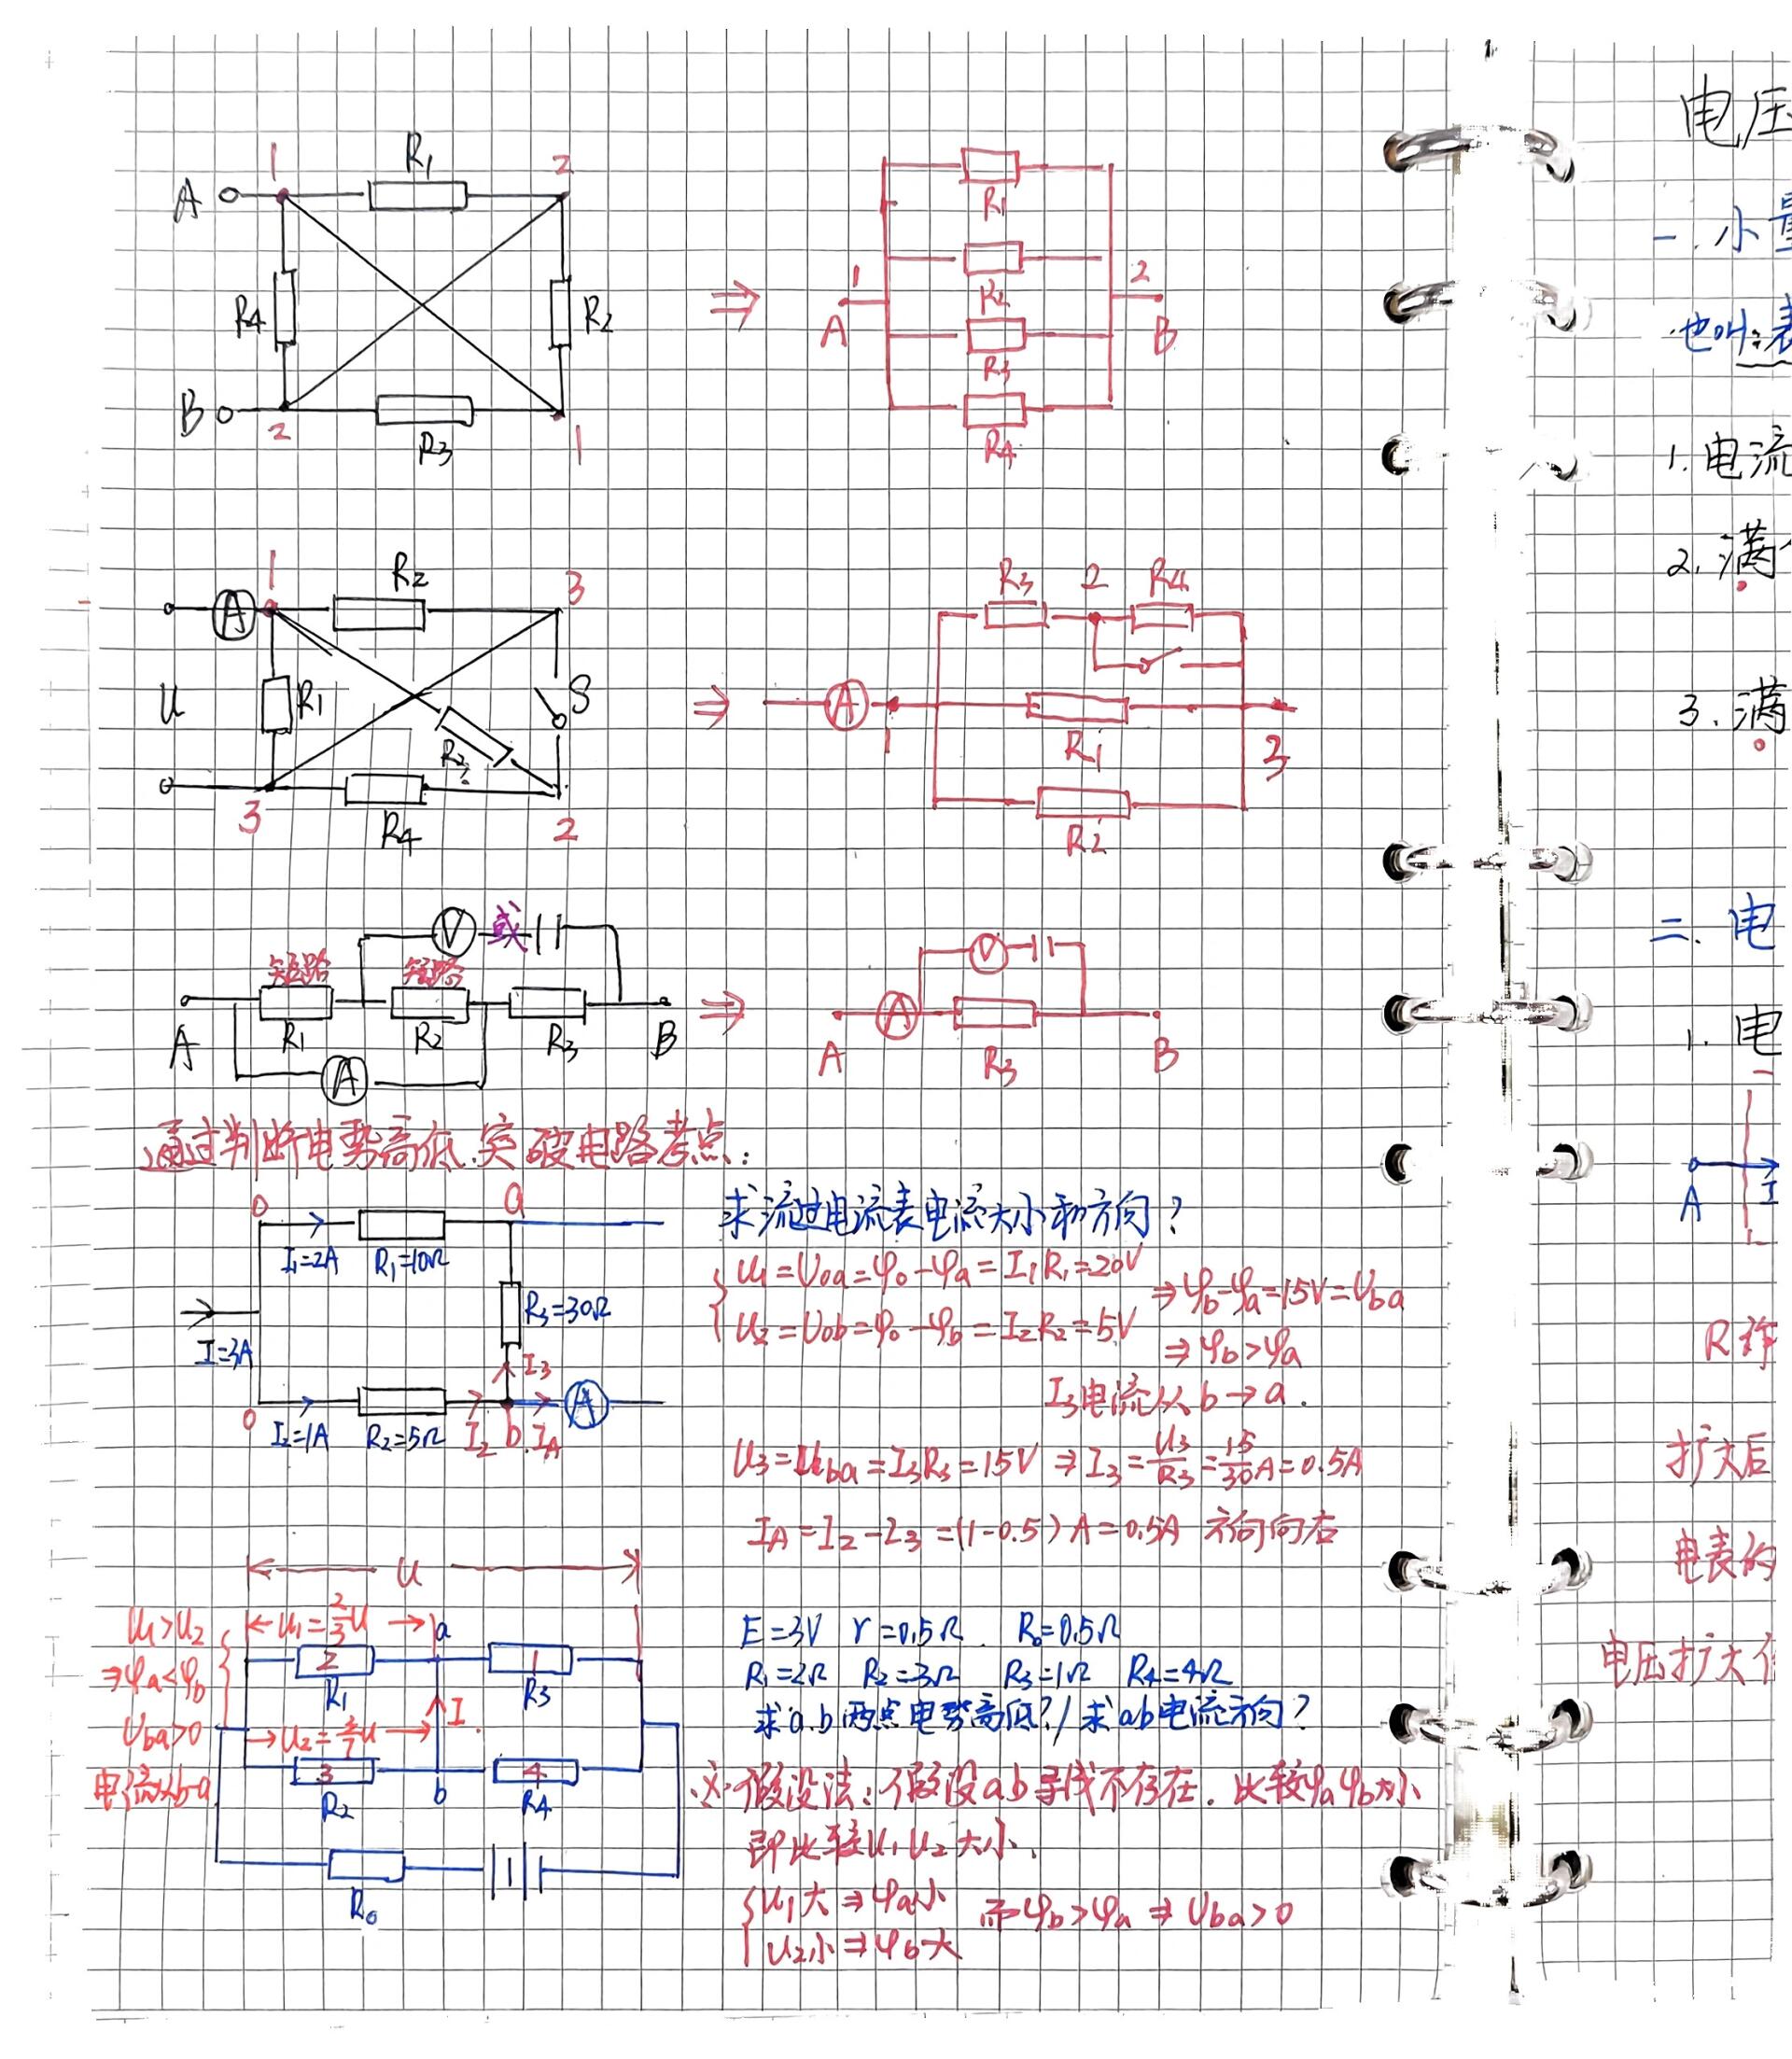 1 R₁ 2
A
R₄ R₂
B
2 R₃ 1
⇒
R₁
1 R₂ 2
A R₃ B
R₄
1 R₂ 3
A
U R₁ S
R₂
3 R₄ 2
⇒
R₃ 2 R₄
A
1 R₁ 3
R₂
V 或
短路 短路
A R₁ R₂ R₃ B
A
⇒
V
A
A R₃ B
通过判断电势高低.突破电路考点:
0 a
I₁=2A R₁=10Ω
R₃=30Ω
I=3A
I₃
A
0 I₂=1A R₂=5Ω I₂ b I_A
求流过电流表电流大小和方向?
U₁=U₀a=φ₀-φa=I₁R₁=20V
U₂=U₀b=φ₀-φb=I₂R₂=5V
⇒φb-φa=15V=Uba
⇒φb>φa
I₃电流从b→a.
U₃=Uba=I₃R₃=15V ⇒ I₃=U₃/R₃=15/30A=0.5A
I_A=I₂-I₃=(1-0.5)A=0.5A 方向向右
U
U₁>U₂
⇒φa<φb
Uba>0
电流从b→a
U₁=2/3U a
2 1
R₁ R₃
I
3 4
R₂ b R₄
R₀
E=3V r=0.5Ω R₀=0.5Ω
R₁=2Ω R₂=3Ω R₃=1Ω R₄=4Ω
求a.b两点电势高低?/求ab电流方向?
※假设法:假设ab导线不存在.比较φaφb大小
即比较U₁U₂大小.
U₁大⇒φa小
U₂小⇒φb大
而φb>φa ⇒ Uba>0
电压
一.小量
也叫:表
1.电流
2.满
3.满
二.电
1.电
A I
扩大后
电表的
电压扩大